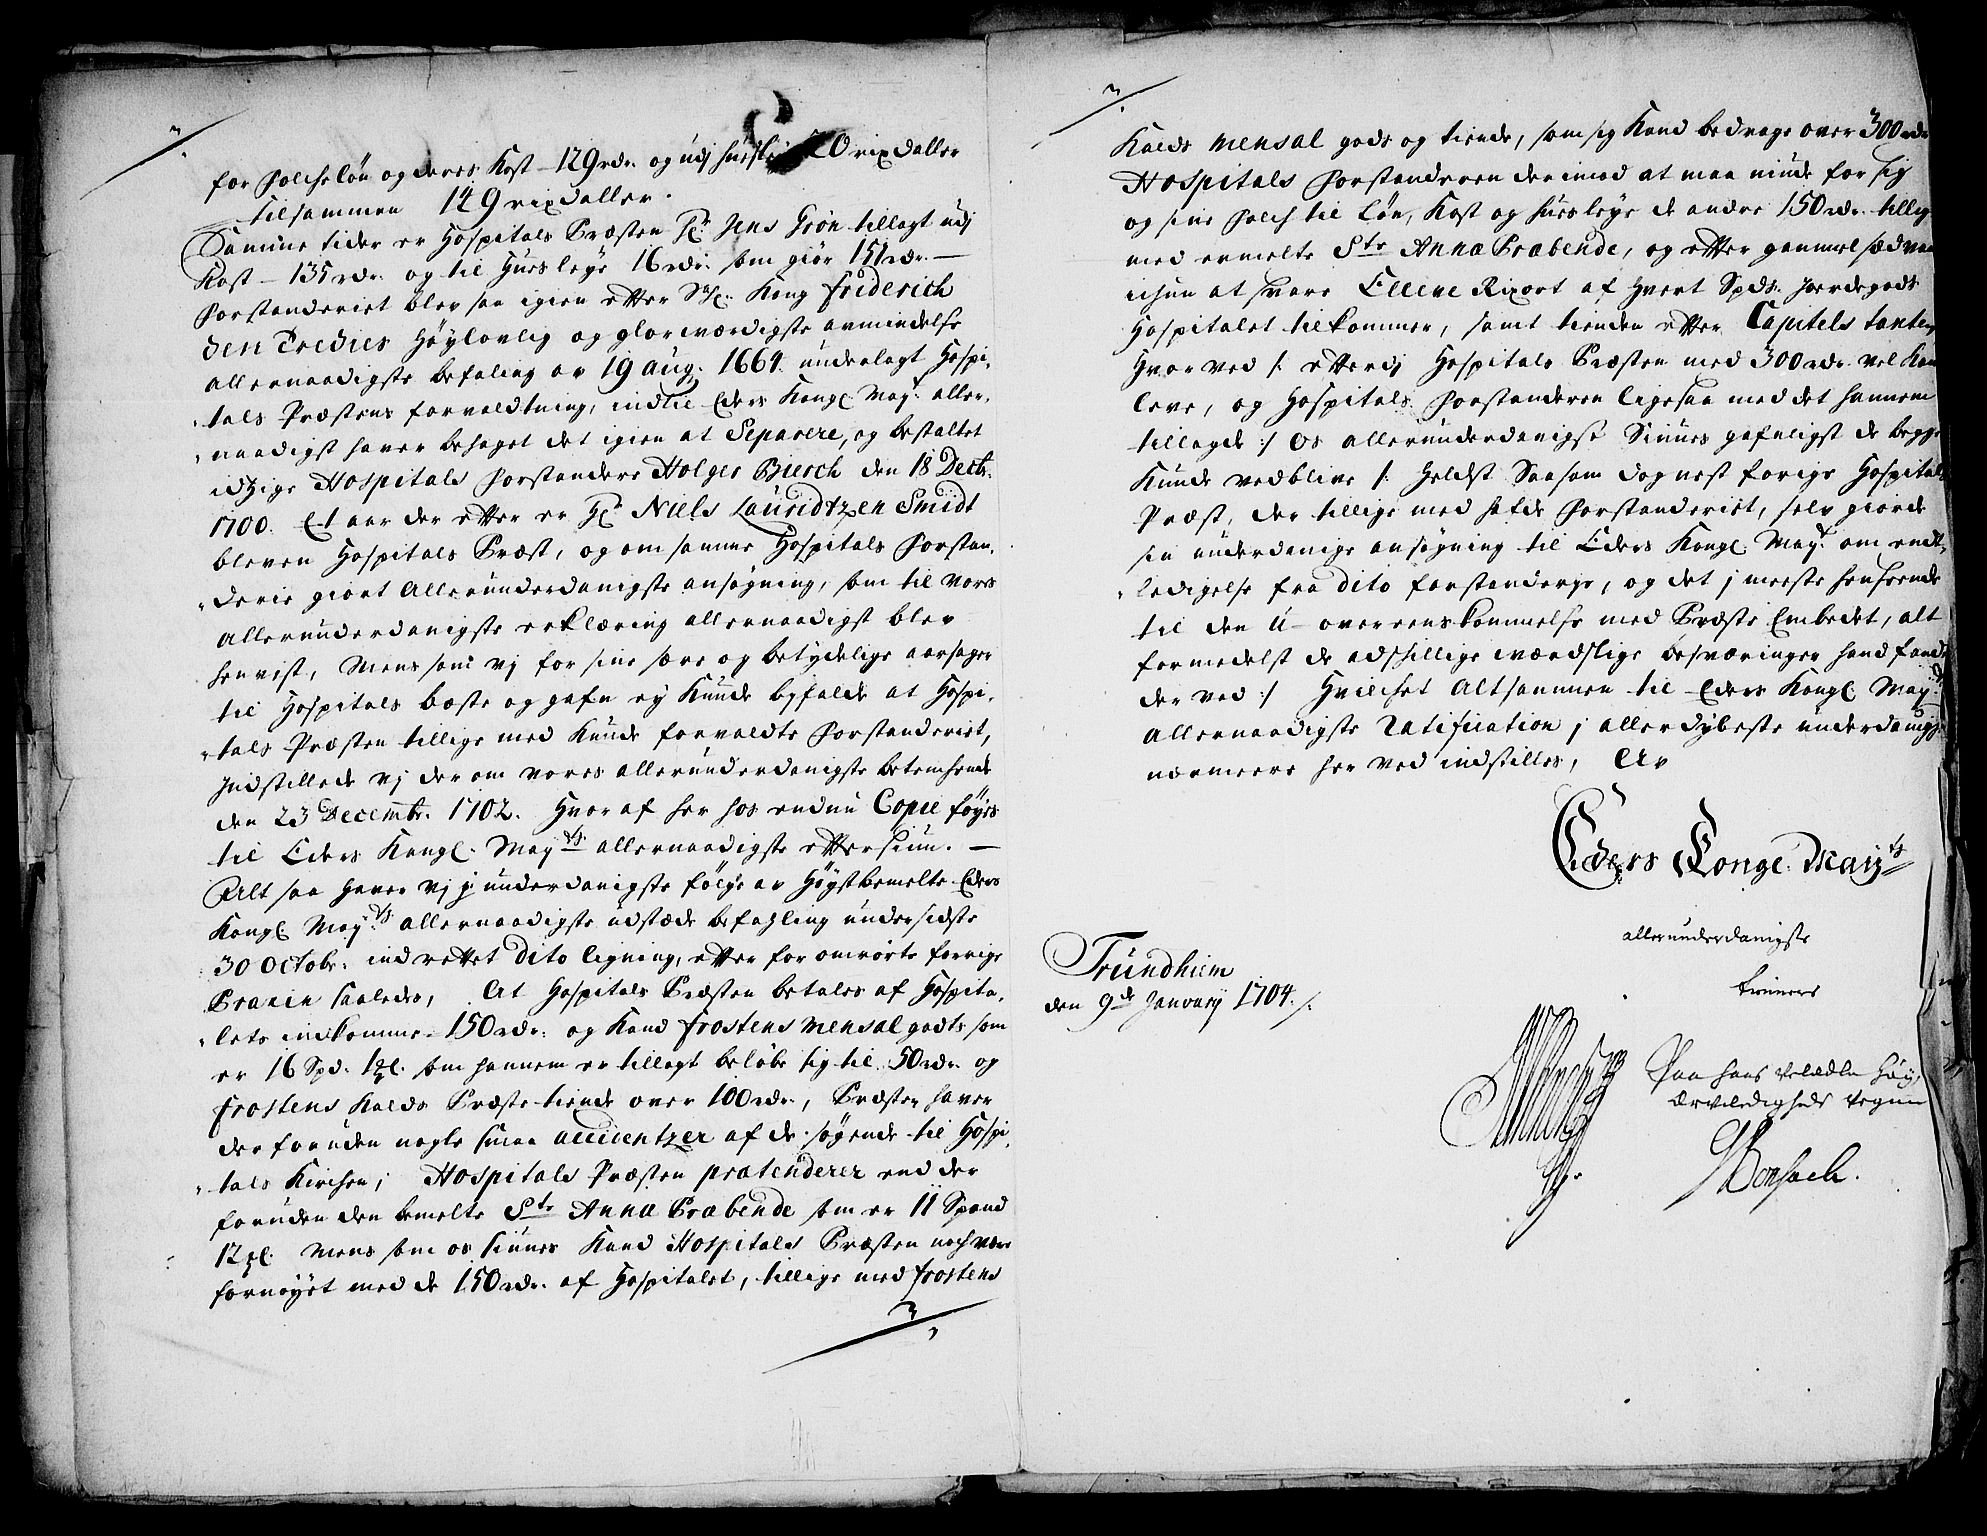 for Folcheløn og deres Kost - 129 rdr. og udj huusleye 20 rixdaller
tilsammen 149 rixdaller.
Samme tider er Hospitals Præsten Hr. Jens Grøn tillagt udj
Kost - 135 rdr. og til Huusleye 16 rdr. som giør 151 rdr. —
Forstanderiet blev saa igien efter S: Kong Friderich
den Tredies Høylovlig og glorværdigste amindelse
allernaadigste befaling av 19 Aug. 1664 underlagt Hospi-
tals Præstens forvaldtning, indtil Eders Kongl. May: aller-
naadigst haver behaget det igien at Separere, og bestaltet
idzige Hospitals Forstandere Holger Bierch den 18 Decbr.
1700. Et aar der efter er Hr Niels Lauridtzen Smidt
bleven Hospitals Præst, og om samme Hospitals Forstan-
derie giort Allerunderdanigste ansøgning, som til vores
Allerunderdanigste erklæring allernaadigst blev
henvist, Mens som vj for sine sære og betydelige aarsager
til Hospitals bæste og gafn ey Kunde byfalde at Hospi-
tals Præsten tillige med Kunde forvaldte Forstanderiet,
Indstillede vj der om vores allerunderdanigste betenchende
den 23 Decembr. 1702. Hvor af her hos endnu Copie føyes
til Eders Kongl. Mayts allernaadigste eftersiun. —
Alt saa haver vj j underdanigste følge av Høystbemelte Eders
Kongl. Mayts allernaadigste udstæde befahling under sidste
30 Octobr. indrettet dito ligning, efter for omrørte forrige
Praxin saaledes, At Hospitals Præsten betales af Hospita-
lets indkomme - 150 rdr. og Kand Frostens Mensal gods som
er 16 Spd. 1 som hannem er tillagt beløbe sig til 50 rdr. og
Frostens Kalds Præste tiende over 100 rdr., Præsten haver
der foruden nogle smaa accidentzer af de søgende til Hospi-
tals Kirchen; Hospitals Præsten prætenderer end der
foruden den bemelte Stæ Annæ Præbende som er 11 Spand
12 Mens som os siunes Kand Hospitals Præsten noch være
fornøyet med de 150 rdr. af Hospitalet, tillige med Frostens
Kalds Mensal gods og tiende, som sig Kand bedrage over 300 rdr
Hospitals Forstanderen derimod at maa niude for sig
og sine Folch til løn, Kost og huusleye de andre 150 rdr. tillige
med ermelte Stæ Annæ Præbende, og efter gammel sædvan
at svare Eleve Rixort af Hvert Spds. Jordegods
Hospitalet tilkommer, samt tienden efter Capitels taxten
Hvorved /: efterdj Hospitals Præsten med 300 rdr. vel Kan
leve, og Hospitals Forstanderen ligesaa med det hannem
tillagde :/ os allerunderdanigst Siunes gafnligst de begge
Kunde vedblive /: Heldst Saasom dog nest forige Hospitals
Præst, der tillige med hafde Forstanderiet, selv giorde
sin underdanige ansøgning til Eders Kongl. Mayt. om endt-
ledigelse fra dito forstanderie, og det j meeste henseende
til den U- overenskommelse med Præste Embedet, alt
formedelst de adskillige værdslige besværinger hand fandt
derved :/ Hvilchet Altsammen til Eders Kongl. Mayts
Allernaadigste Ratification j allerdybeste underdanig
nærmere her ved indstilles, Av
Eders Kongl. Mayts
allerunderdanigste
tienere
Trundhiem
den 9de January 1704. /.
Paa hans Velædle Høy-
ærværdigheds vegne